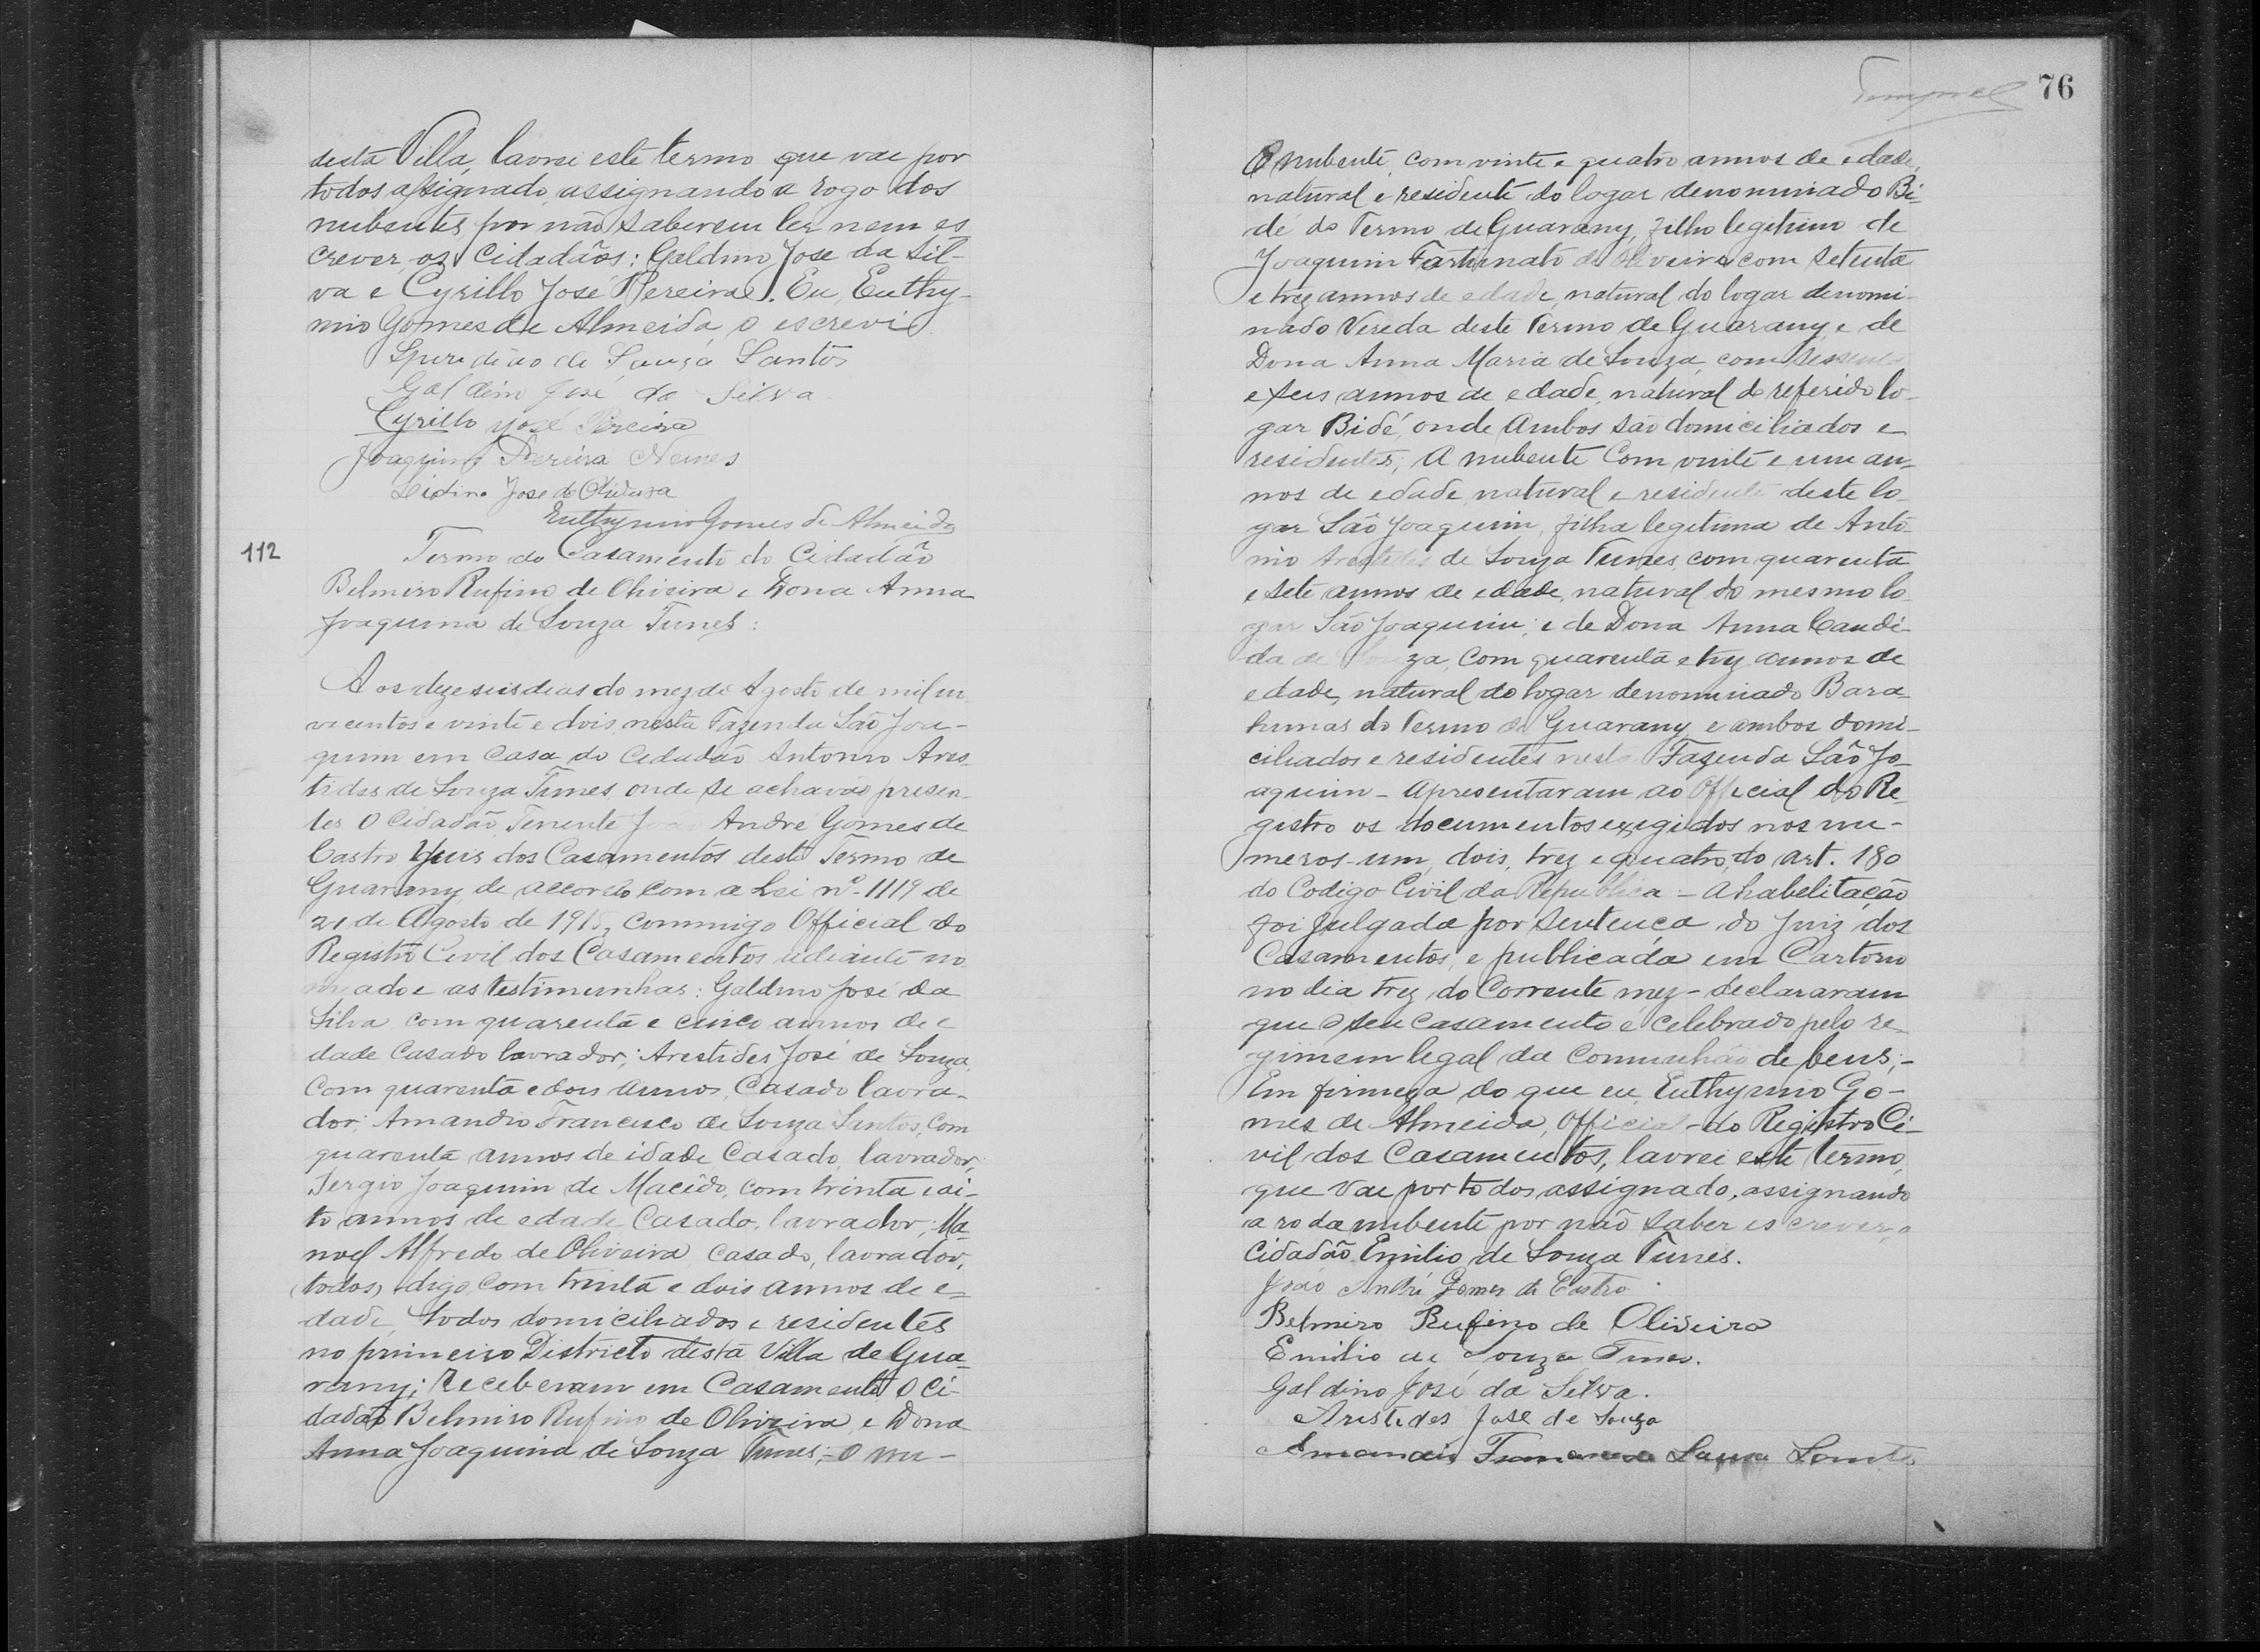 desta Villa, lavrei este termo que vae por
todos assignado assignando a rogo dos
nubentes por não saberem ler nem es
crever os Cidadãos: Galdino Jose da Sil-
va e Cyrillo José Pereira. Eu, Euthy-
mio Gomes de Almeida, o escrevi.
Spiridião de Souza Santos
Galdino José da Silva
Cyrillo José Pereira
Joaquim Pereira Nunes
Jose de Oliveira
Euthymio Gomes de Almeida
112
Termo do Casamento do Cidadão
Belmiro Rufino de Oliveira e Dona Anna
Joaquina de Souza Tunes:
Aos deze seis dias do mez de Agosto de mil no
vecentos e vinte e dois, nesta Fazenda São Joa-
quim em Casa do Cidadão Antonio Ares
tides de Souza Tunes onde se achavão presen-
tes O Cidadão Tenente João André Gomes de
Castro Juis dos Casamentos deste Termo de
Guarany de accordo com a Lei nº 1119 de
21 de Agosto de 1915, commigo Official do
Registro Civil dos Casamentos adiante no
meado e as testimunhas: Galdino José da
Silva com quarenta e cinco annos de e
dade Casado lavrador; Arestides José de Souza,
Com quarenta e dois annos, Casado lavra-
dor; Amandio Francisco de Souza Santos, Com
quarenta annos de idade Casado, lavrador;
Sergio Joaquim de Macêdo, com trinta e oi-
to annos de edade Casado, lavrador; Ma-
noel Alfredo de Oliveira Casado, lavrador,
(todos) digo, com trinta e dois annos de e=
dade, todos domiciliados e residentes
no primeiro Districto desta Villa de Gua-
rany; receberam em Casamento O Ci-
dadão Belmiro Rufino de Oliveira e Dona
Anna Joaquina de Souza Tunes; O nu-
76
O nubente, com vinte e quatro annos de edade,
natural e residente do logar denominado Bi-
dé do Termo de Guarany, filho legitimo de
Joaquim Fortunato de Oliveira com setenta
e trez annos de edade, natural do logar denomi-
nado Vereda deste Termo de Guarany, e de
Dona Anna Maria de Souza, com sessenta
e seis annos de edade, natural do referido lo-
gar Bidé, onde Ambos são domiciliados e
residentes; A nubente Com vinte e um an-
nos de edade natural e residente deste lo-
gar São Joaquim, filha legitima de Anto-
nio Arestides de Souza Tunes, com quarenta
e sete annos de edade, natural do mesmo lo-
gar São Joaquim; e de Dona Anna Candi-
da de Souza, Com quarenta e trez annos de
edade, natural do logar denominado Bara
hunas do Termo de Guarany e ambos domi-
ciliados e residentes nesta Fazenda São Jo-
aquim - Apresentaram ao Official do Re-
gistro os documentos exegidos nos nu-
meros um, dois, trez e quatro, do art. 180
do Codigo Civil da Republica - A habelitação
foi julgada por Sentença do Juiz dos
Casamentos, e publicada em Cartorio
no dia trez do Corrente mez - declararam
que o seu casamento é celebrado pelo re
gimem legal da Comunhão de bens; -
Em firmeza do que eu, Euthymio Go-
mes de Almeida, Official do Registro Ci-
vil dos Casamentos, lavrei este termo,
que vae por todos assignado, assignando
a ro da nubente por não saber escrever, o
Cidadão Emilio de Souza Tunes.
João André Gomes de Castro
Belmiro Rufino de Oliveira
Emilio de Souza Tunes.
Galdino José da Silva.
Aristides José de Souza
Amandio Francisco de Souza Santos